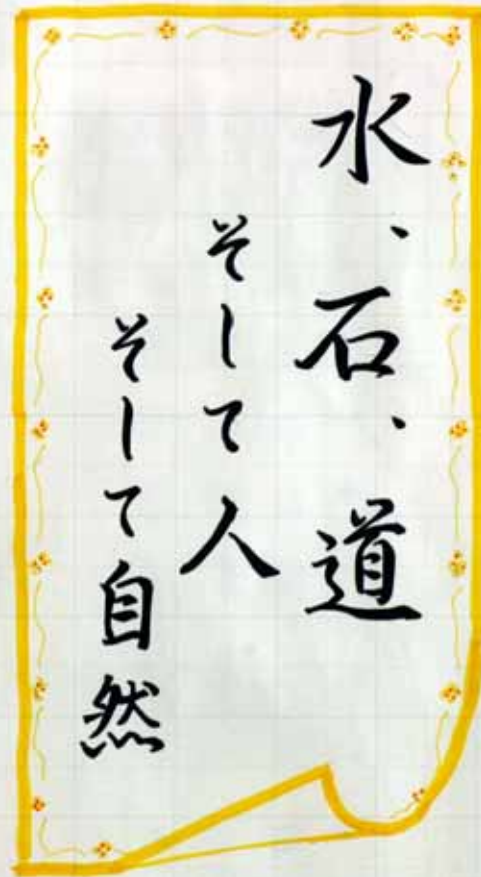 水、石、道
そして人
そして自然